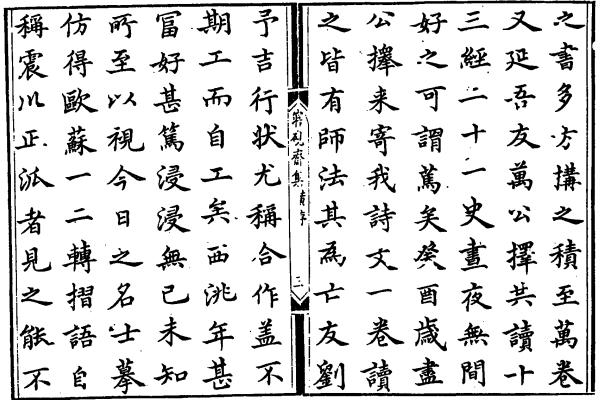 之書多方搆之積至萬卷
又延吾友萬公擇共讀十
三經二十一史晝夜無間
好之可謂篤矣癸酉歲盡
公擇来寄我詩文一卷讀
之皆有師法其為亡友劉
硯齋集 序 三
予吉行狀尤稱合作盖不
期工而自工矣西洮年甚
富好甚篤浸浸無已未知
所至以視今日之名士摹
仿得歐蘇一二轉摺語自
稱震川正派者見之能不